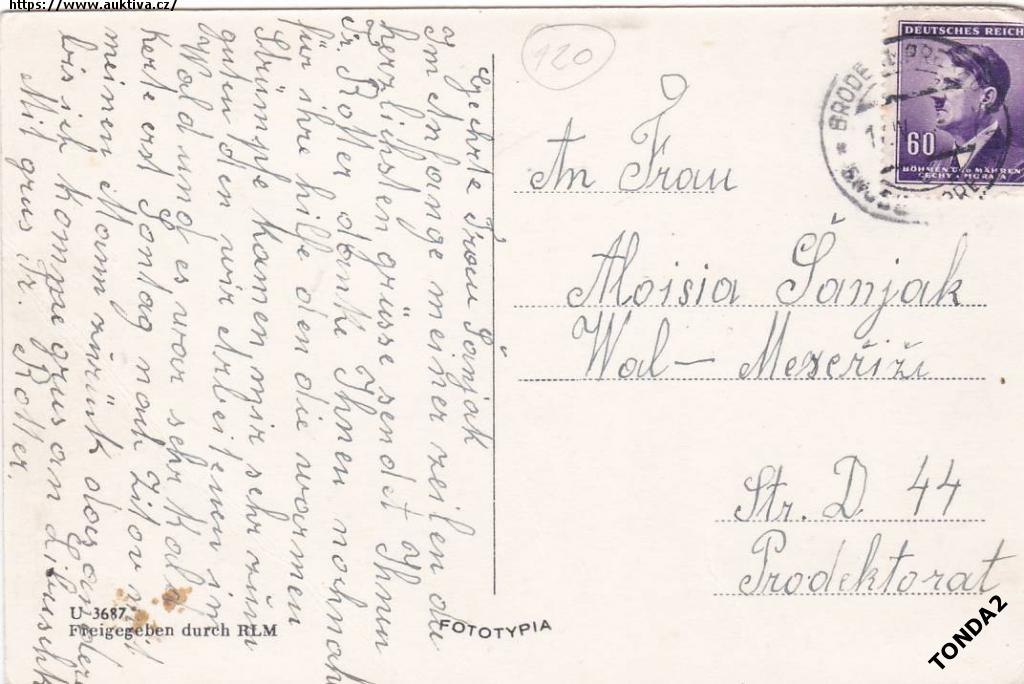 https://www.auktiva.cz/
Geehrte Frau Šanjak
Im Anfange meiner zeilen die
herzlichsten grüsse sendet Ihnen
Fr. Roller danke Ihnen nochmals
für ihre hilfe den die warmen
Strümpfe kamen mir sehr zum
guten den wir Arbeiten im
Wald und es war sehr Kalt
Kerte erst Sontag nach
meinen Mann zürük das andere
bis ich Komme grus an Libuschk
Mit grus Fr. Roller.
U-3687
Freigegeben durch RLM
FOTOTYPIA
120
DEUTSCHES REICH
60
BÖHMEN UND MÄHREN
ČECHY A MORAVA
BROD
An Frau
Aloisia Šanjak
Wal- Meseřiži
Str. D 44
Prodektorat
TONDA2